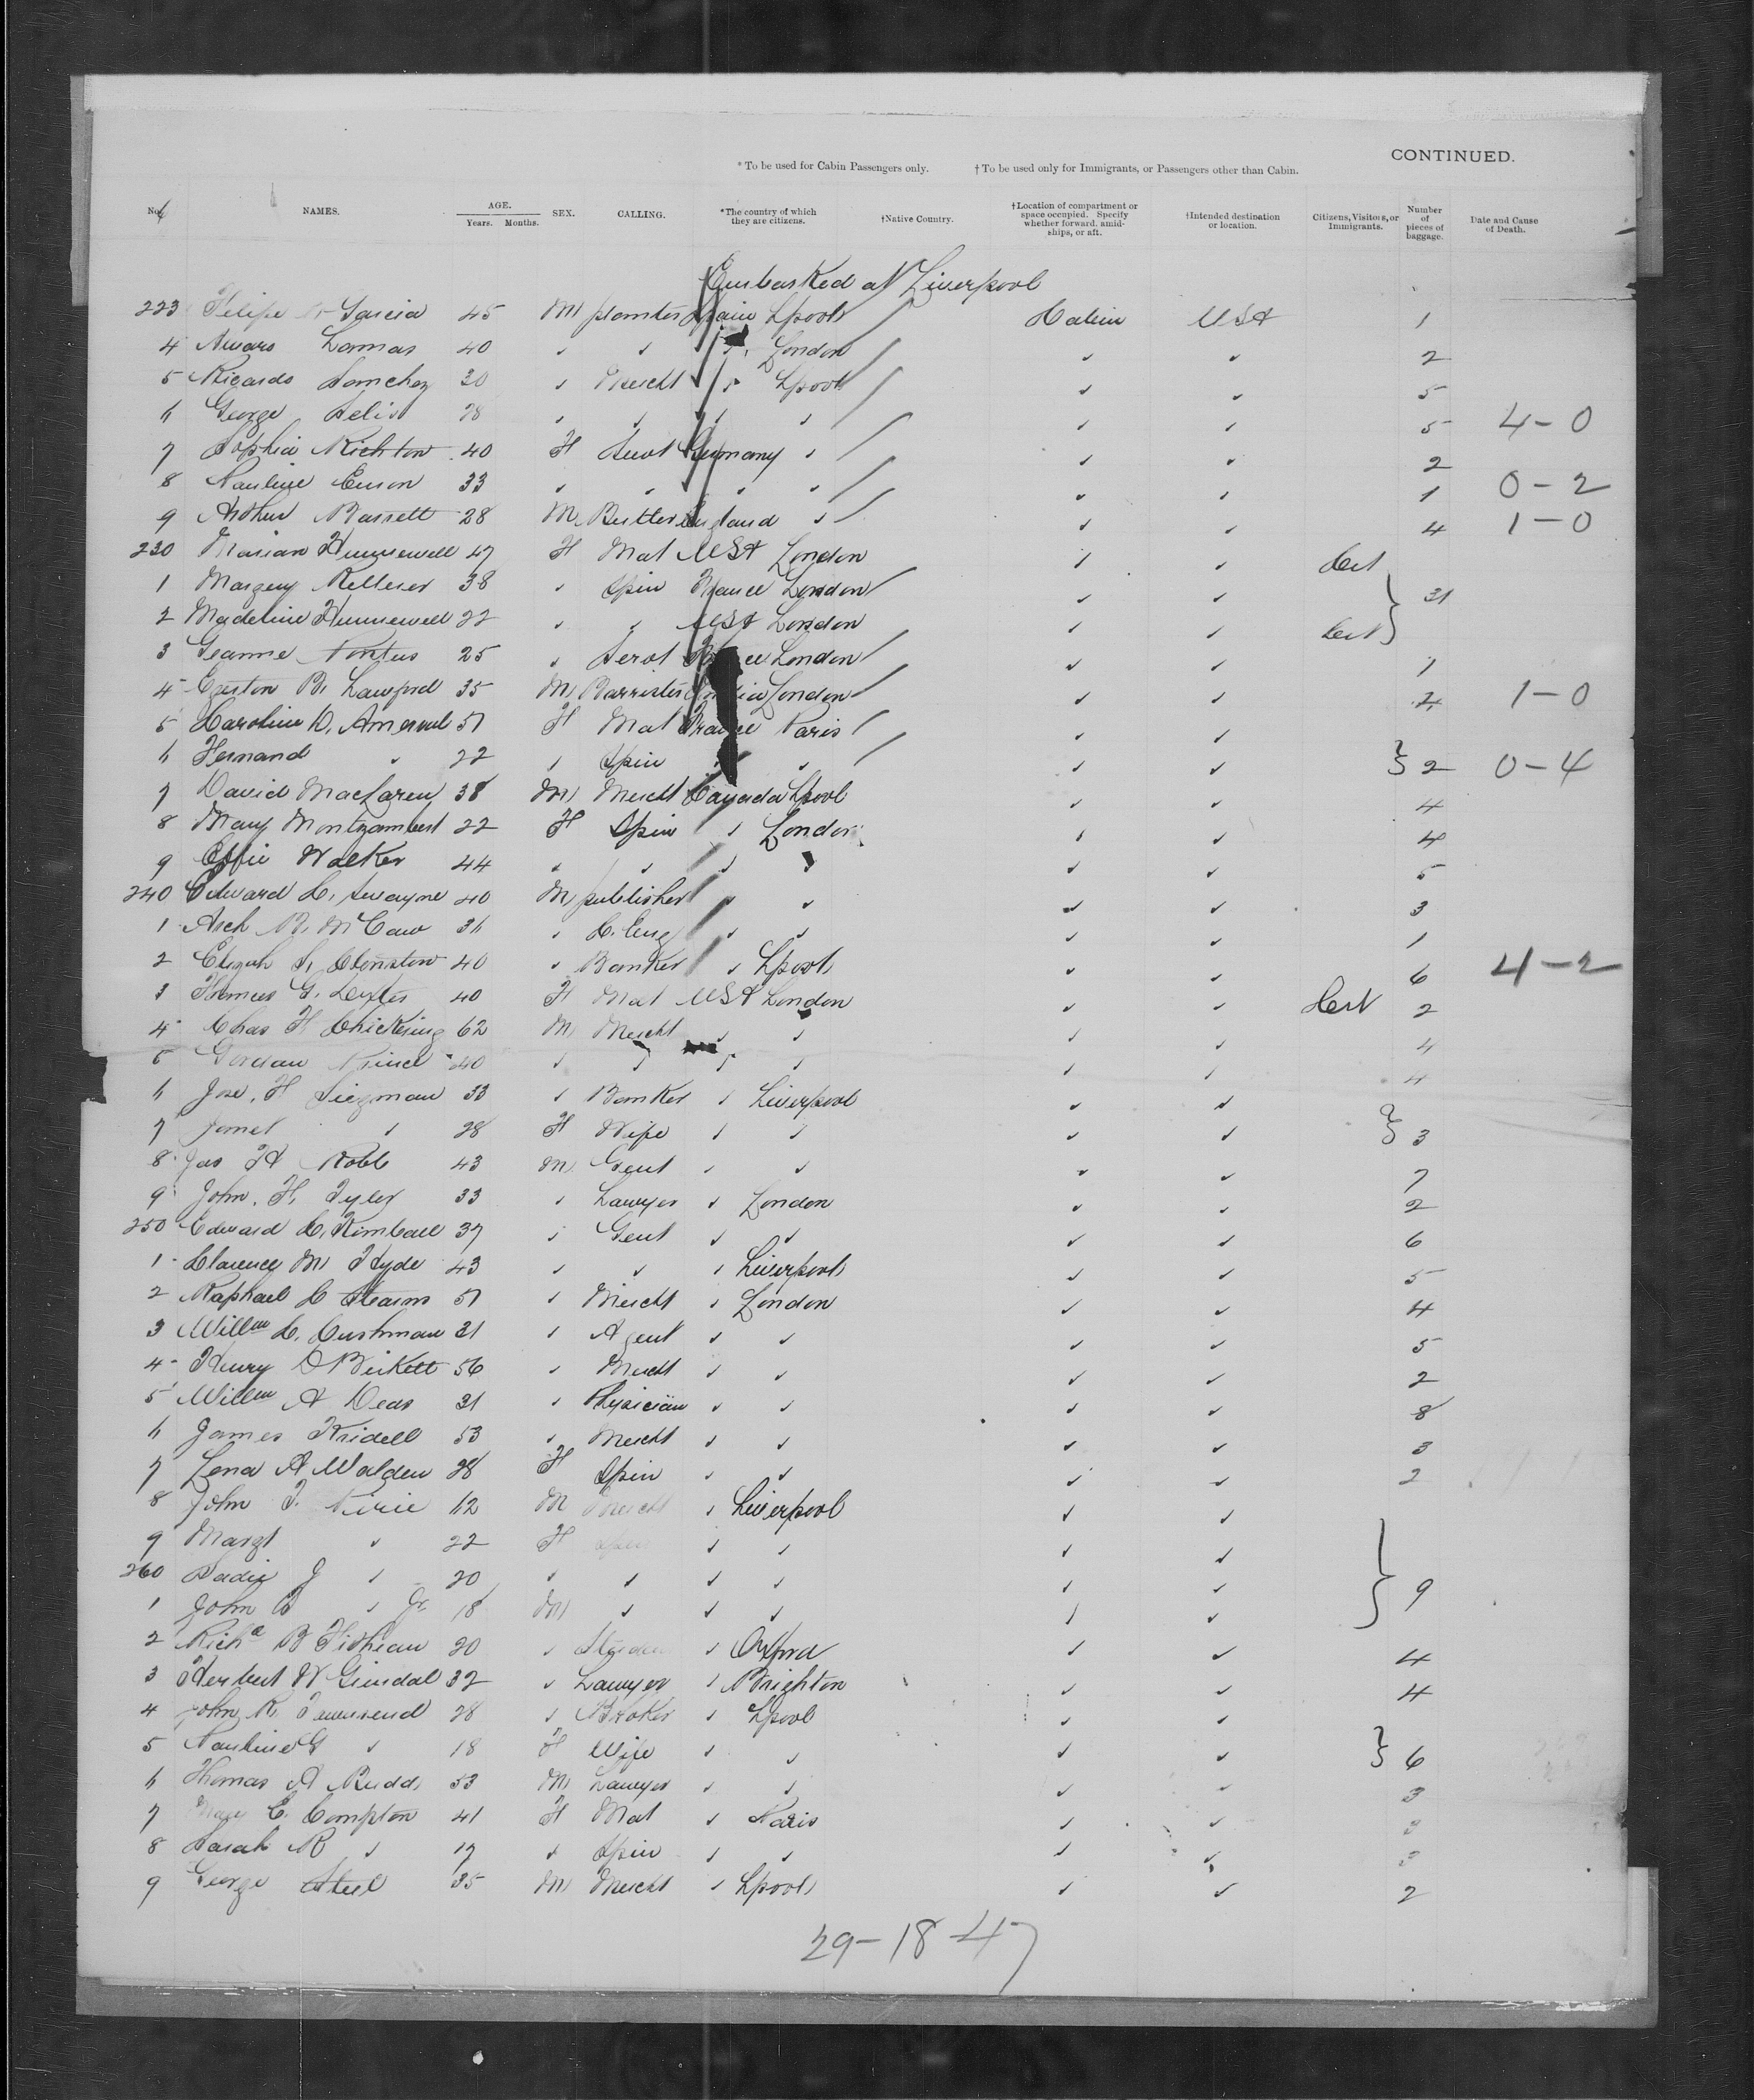 CONTINUED.
* To be used for Cabin Passengers only. † To be used only for Immigrants, or Passengers other than Cabin.
No. NAMES. AGE. Years. Months. SEX. CALLING. *The country of which they are citizens. †Native Country. †Location of compartment or space occupied. Specify whether forward, amidships, or aft. †Intended destination or location. Citizens, Visitors, or Immigrants. Number of pieces of baggage. Date and Cause of Death.
Embarked at Liverpool
223 Felipe Garcia 45 M planter Spain Lpool Cabin USA 1
4 Alvaro 40 ✓ ✓ ✓ London ✓ ✓ 2
5 Ricardo Sanchez 30 ✓ Mercht ✓ Lpool ✓ ✓ 5
6 George 28 ✓ ✓ ✓ ✓ ✓ ✓ 5 4-0
7 Sophia Richtow 40 F Servt Germany ✓ ✓ ✓ 2
8 Pauline 33 ✓ ✓ ✓ ✓ ✓ ✓ 1 0-2
9 Arthur Bassett 28 M Butler England ✓ ✓ ✓ 4 1-0
230 Marian Hunnewell 47 F Mat USA London ✓ ✓ Cert
1 Margery 38 ✓ Spin France London ✓ ✓ 31
2 Madeline Hunnewell 22 ✓ ✓ USA London ✓ ✓ Cert
3 Jeanne 25 ✓ Servt France London ✓ ✓ 1
4 B. Lawford 35 M Barrister London ✓ ✓ 4 1-0
5 Caroline D. 51 F Mat France Paris ✓ ✓
6 Fernand ✓ 22 ✓ Spin ✓ ✓ ✓ 2 0-4
7 David MacLaren 38 M Mercht Canada Lpool ✓ ✓ 4
8 Mary Montzambert 22 F Spin ✓ London ✓ ✓ 4
9 Effie Walker 44 ✓ ✓ ✓ ✓ ✓ 5
240 Edward C. Swayne 40 M publisher ✓ ✓ ✓ ✓ 3
1 Arch B. McCaw 36 ✓ C. Eng ✓ ✓ ✓ ✓ 1
2 Elijah 40 ✓ Banker ✓ Lpool ✓ ✓ 6 4-2
3 Frances G. Dexter 40 F Mat USA London ✓ ✓ Cert 2
4 Chas F. Chickering 62 M Mercht ✓ ✓ ✓ ✓ 4
5 Gordan Prince 40 ✓ ✓ ✓ ✓ ✓ ✓ 4
6 Jos. H 33 ✓ Banker ✓ Liverpool ✓ ✓
7 Janet ✓ 28 F Wife ✓ ✓ ✓ ✓ 3
8 Jas H Robb 43 M Gent ✓ ✓ ✓ ✓ 7
9 John. F. Tyler 33 ✓ Lawyer ✓ London ✓ ✓ 2
250 Edward C. Kimball 37 ✓ Gent ✓ ✓ ✓ ✓ 6
1 Clarence M Hyde 43 ✓ ✓ ✓ Liverpool ✓ ✓ 5
2 Raphael C Stearns 51 ✓ Mercht ✓ London ✓ ✓ 4
3 Willm C. Cushman 31 ✓ Agent ✓ ✓ ✓ ✓ 5
4 Henry D Birkett 56 ✓ Mercht ✓ ✓ ✓ ✓ 2
5 Willm A Deas 31 ✓ Physician ✓ ✓ ✓ ✓ 8
6 James Fridell 53 ✓ Mercht ✓ ✓ ✓ ✓ 3
7 Lena A Walden 28 F Spin ✓ ✓ ✓ ✓ 2
8 John T. Pirie 62 M Mercht ✓ Liverpool ✓ ✓
9 Margt ✓ 22 F Spin ✓ ✓ ✓ ✓
260 Sadie J ✓ 20 ✓ ✓ ✓ ✓ ✓ ✓ 9
1 John T ✓ Jr. 18 M ✓ ✓ ✓ ✓ ✓
2 Richd B 20 ✓ Student ✓ Oxford ✓ ✓ 4
3 Herbert W Grindal 32 ✓ Lawyer ✓ Brighton ✓ ✓ 4
4 John R. Townsend 28 ✓ Broker ✓ Lpool ✓ ✓
5 Pauline G ✓ 18 F Wife ✓ ✓ ✓ ✓ 6
6 Thomas A Rudd 53 M Lawyer ✓ ✓ ✓ ✓ 3
7 Mary E. Compton 41 F Mat ✓ Paris ✓ ✓ 3
8 Sarah R ✓ 17 ✓ Spin ✓ ✓ ✓ ✓ 3
9 George Steel 35 M Mercht ✓ Lpool ✓ ✓ 2
29-18-47